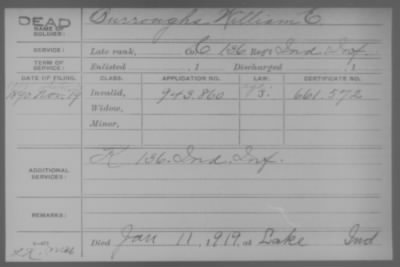 DEAD
NAME OF SOLDIER: Burroughs, William E.
SERVICE: Late rank, Co. C, 136 Reg't Ind. Inf.
TERM OF SERVICE: Enlisted , 1 Discharged , 1
DATE OF FILING. CLASS. APPLICATION NO. LAW. CERTIFICATE NO.
Nov. 19 Invalid, 943.860 661.572
Widow,
Minor,
ADDITIONAL SERVICES: K 136. Ind. Inf.
REMARKS:
Died Jan 11, 1919, at Lake Ind